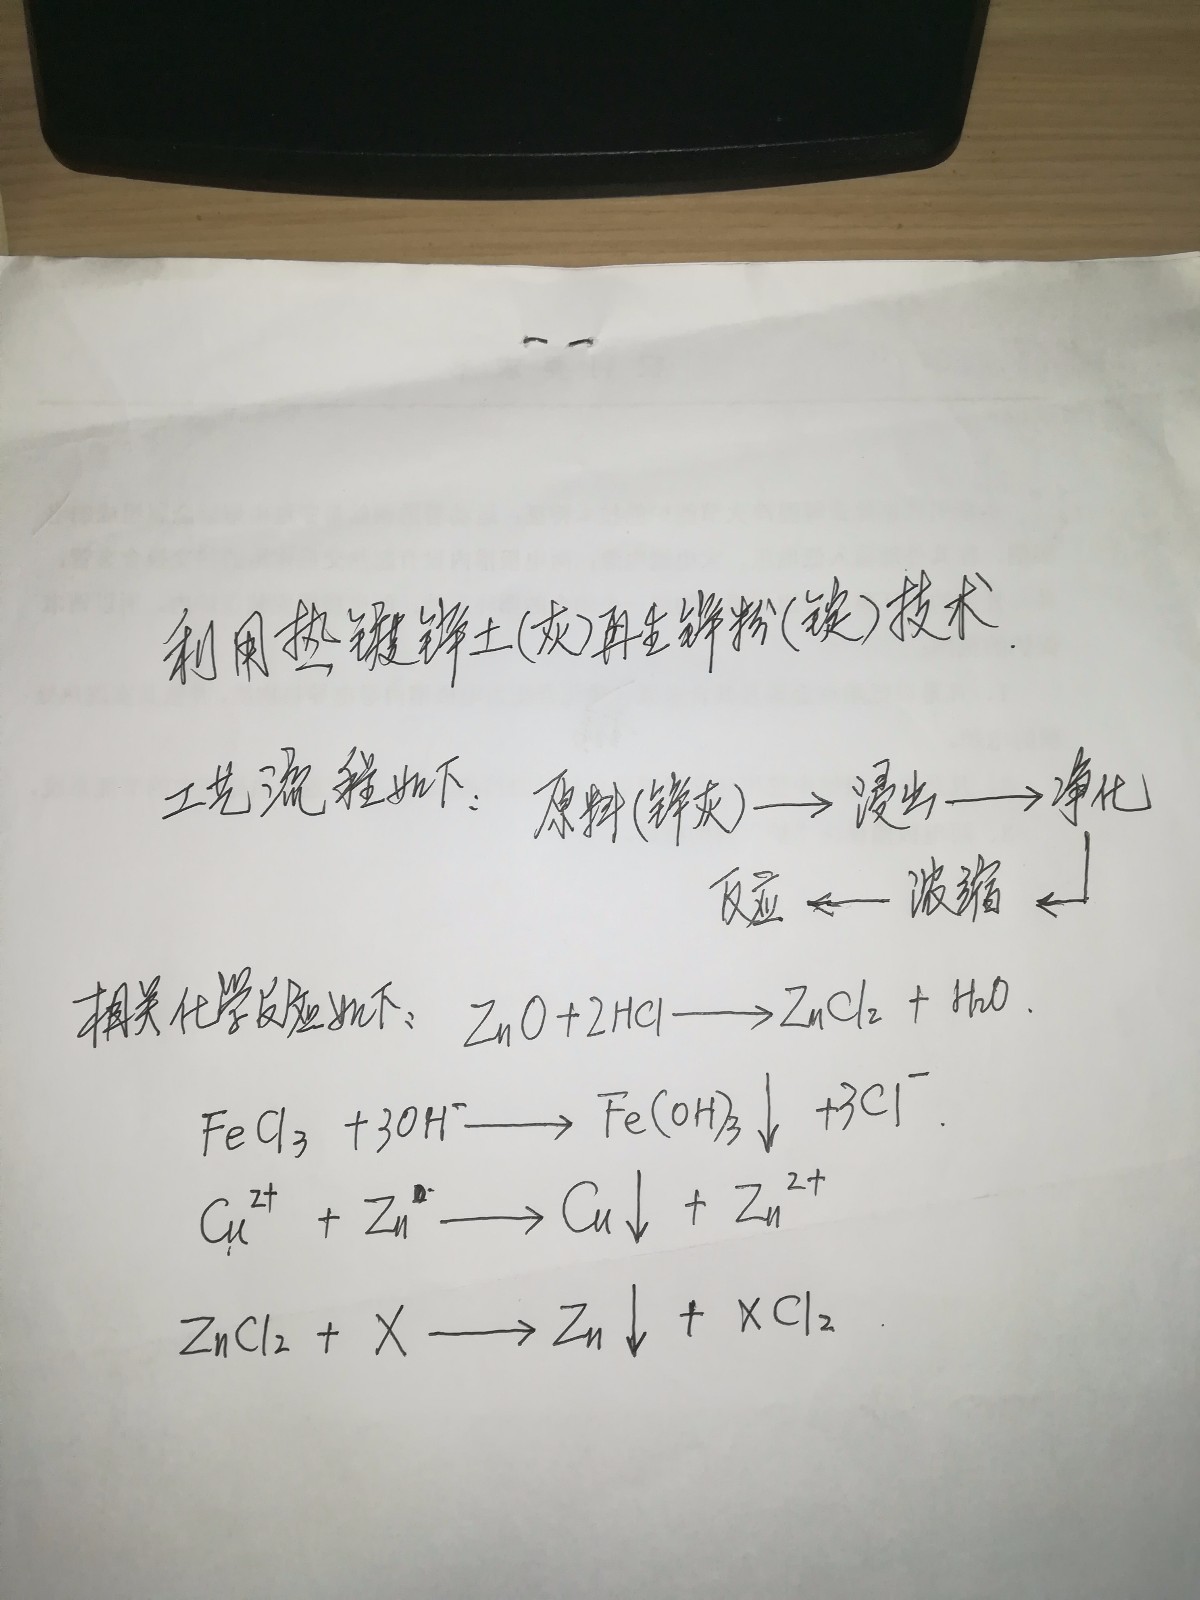 利用热镀锌土(灰)再生锌粉(锭)技术.
工艺流程如下: 原料(锌灰)⟶浸出⟶净化
反应⟵浓缩↵
相关化学反应如下: ZnO+2HCl⟶ZnCl₂ + H₂O.
FeCl₃ +3OH⁻⟶Fe(OH)₃↓ +3Cl⁻.
Cu²⁺ + Zn⟶Cu↓ + Zn²⁺
ZnCl₂ + X⟶Zn↓ + XCl₂.